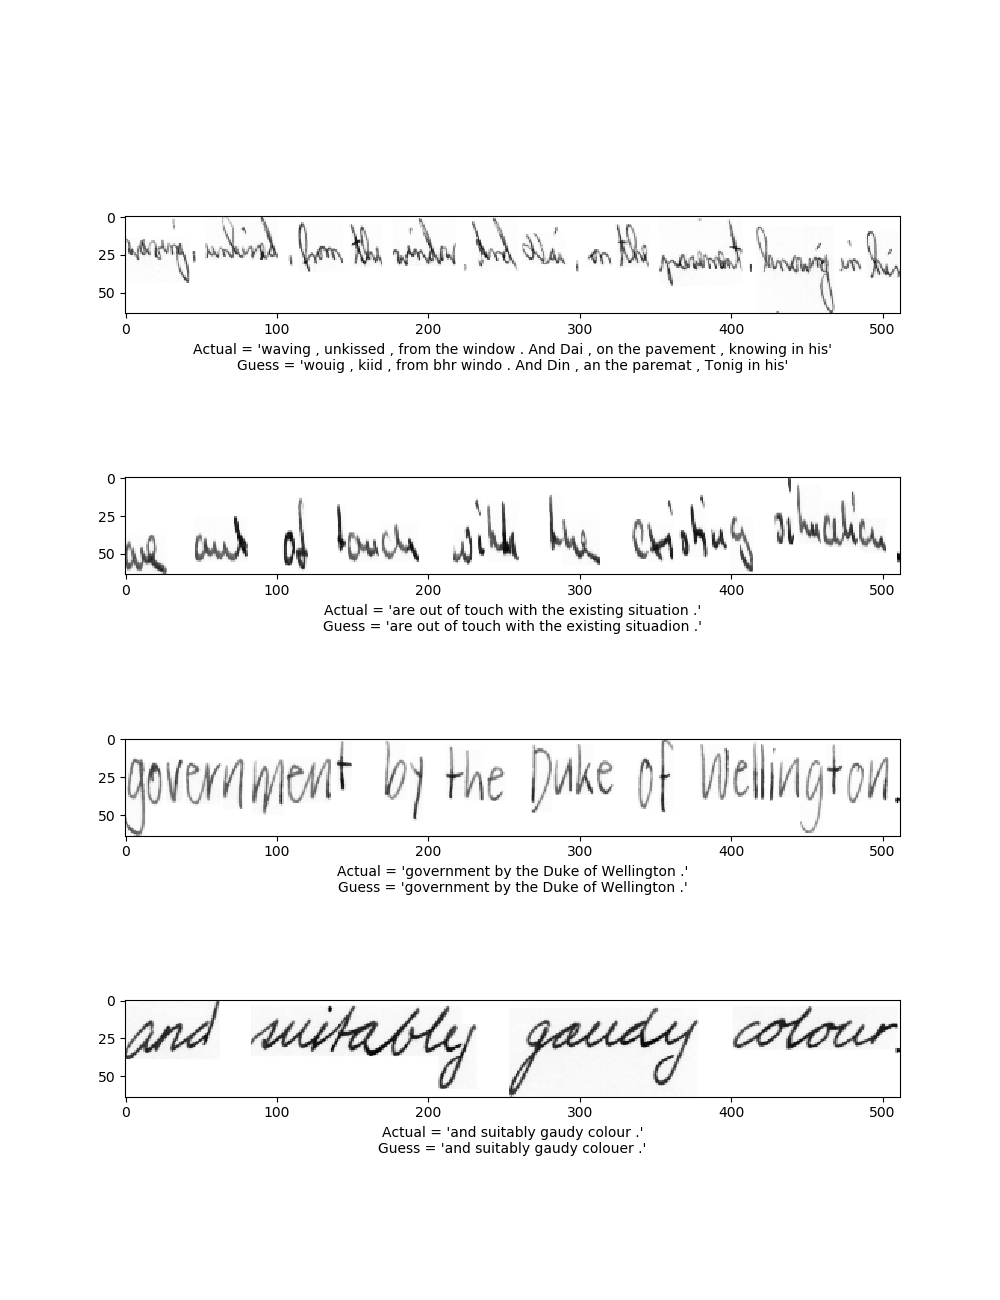 0
25
50
waving , unkissed , from the window . And Dai , on the pavement , knowing in his
0 100 200 300 400 500
Actual = 'waving , unkissed , from the window . And Dai , on the pavement , knowing in his'
Guess = 'wouig , kiid , from bhr windo . And Din , an the paremat , Tonig in his'
0
25
50
are out of touch with the existing situation .
0 100 200 300 400 500
Actual = 'are out of touch with the existing situation .'
Guess = 'are out of touch with the existing situadion .'
0
25
50
government by the Duke of Wellington.
0 100 200 300 400 500
Actual = 'government by the Duke of Wellington .'
Guess = 'government by the Duke of Wellington .'
0
25
50
and suitably gaudy colour.
0 100 200 300 400 500
Actual = 'and suitably gaudy colour .'
Guess = 'and suitably gaudy colouer .'